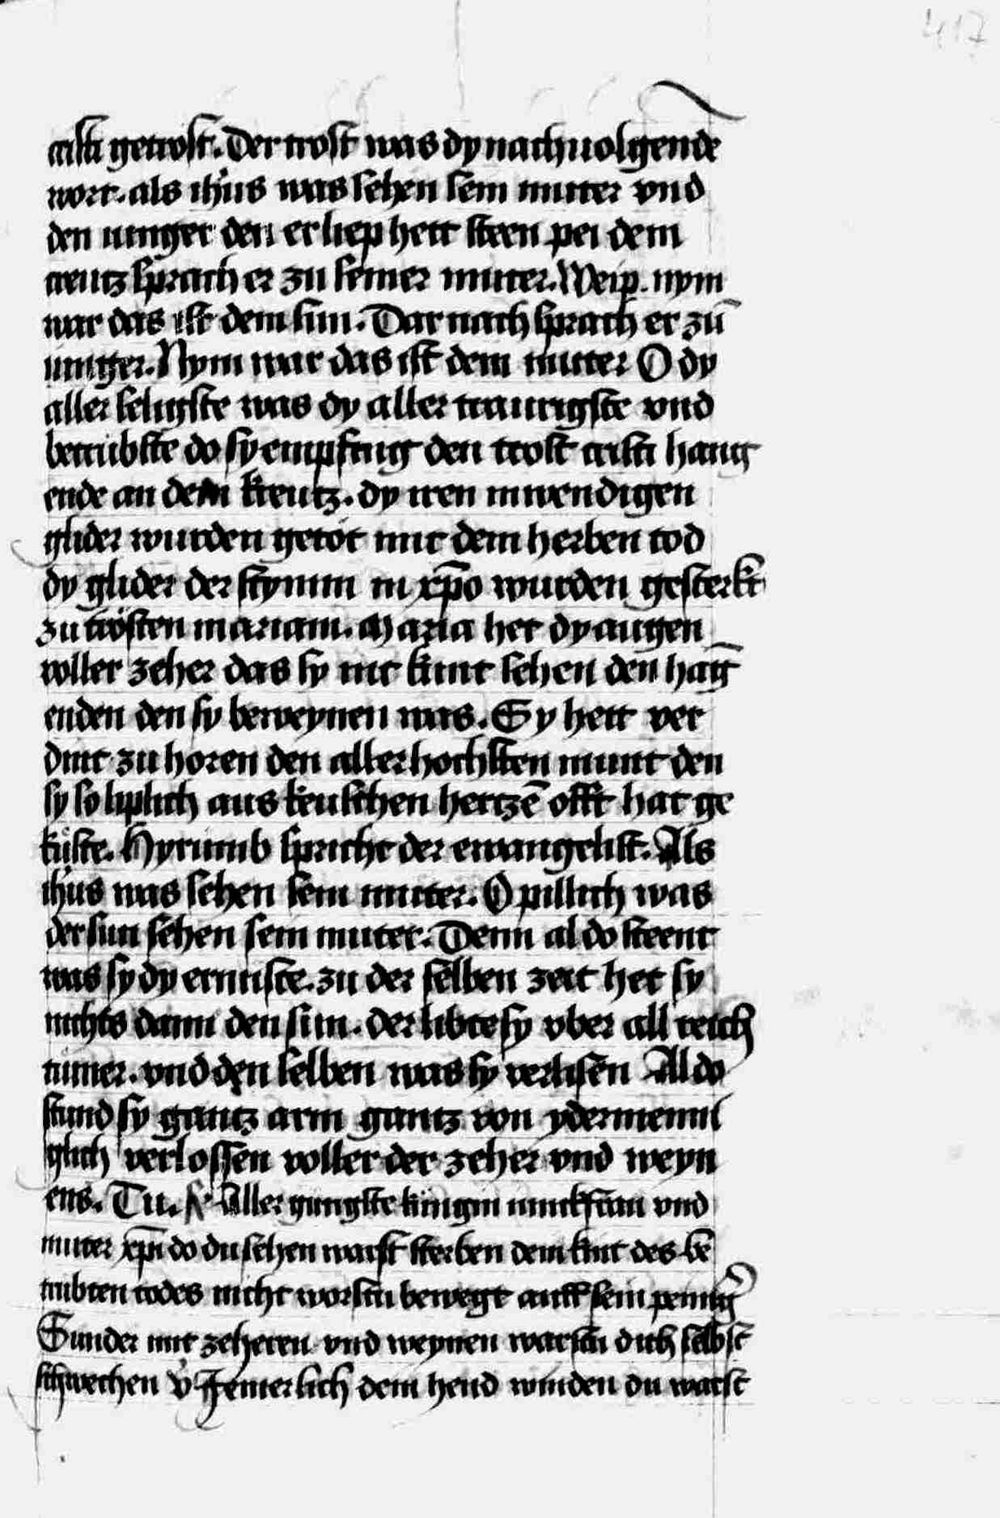 417
cristi getrost. Der trost was dy nachuolgende
wort. als ihũs was sehen sein muter vnd
den iunger den er liep hett steen pei dem
creutz sprach er zu seiner muter. Weip. nym
war das ist dein sun. Dar nach sprach er zũ
iunger. Nym war das ist dein muter O dy
aller seligste was dy aller traurigste vnd
betrubste do sy empfing den trost cristi hang
ende an dem kreutz. dy iren inwendigen
glider wurden getöt mit dem herben tod
dy glider der stymm in xp̄o wurden gesterkt
zu trösten mariam. Maria het dy augen
voller zeher das sy nit kunt sehen den hāg
enden den sy beweynen was. Sy hett ver
dint zu horen den aller hochsten munt den
sy so liplich aus keuschen hertzē offt hat ge
küste. Hyrumb spricht der ewangelist. Als
ihũs was sehen sein muter. O pillich was
der sun sehen sein muter. Denn al do steent
was sy dy erntiste. zu der selben zeit het sy
nichts dann den sun. der libte sy vber all reich
tumer. vnd den selben was sy verlisen Al do
stund sy gantz arm gantz von ydermenni
glich verlossen voller der zeher vnd weyn
ens. Tu. Aller gungste kungin iunckfrau vnd
muter xp̄i do du sehen warst sterben dein kint des be
trubten todes nicht worstu bewegt auff sein peinig̃
Sunder mit zeheren vnd weynen warstu dich selbst
schwechen v̄ Jemerlich dein hend winden du warst